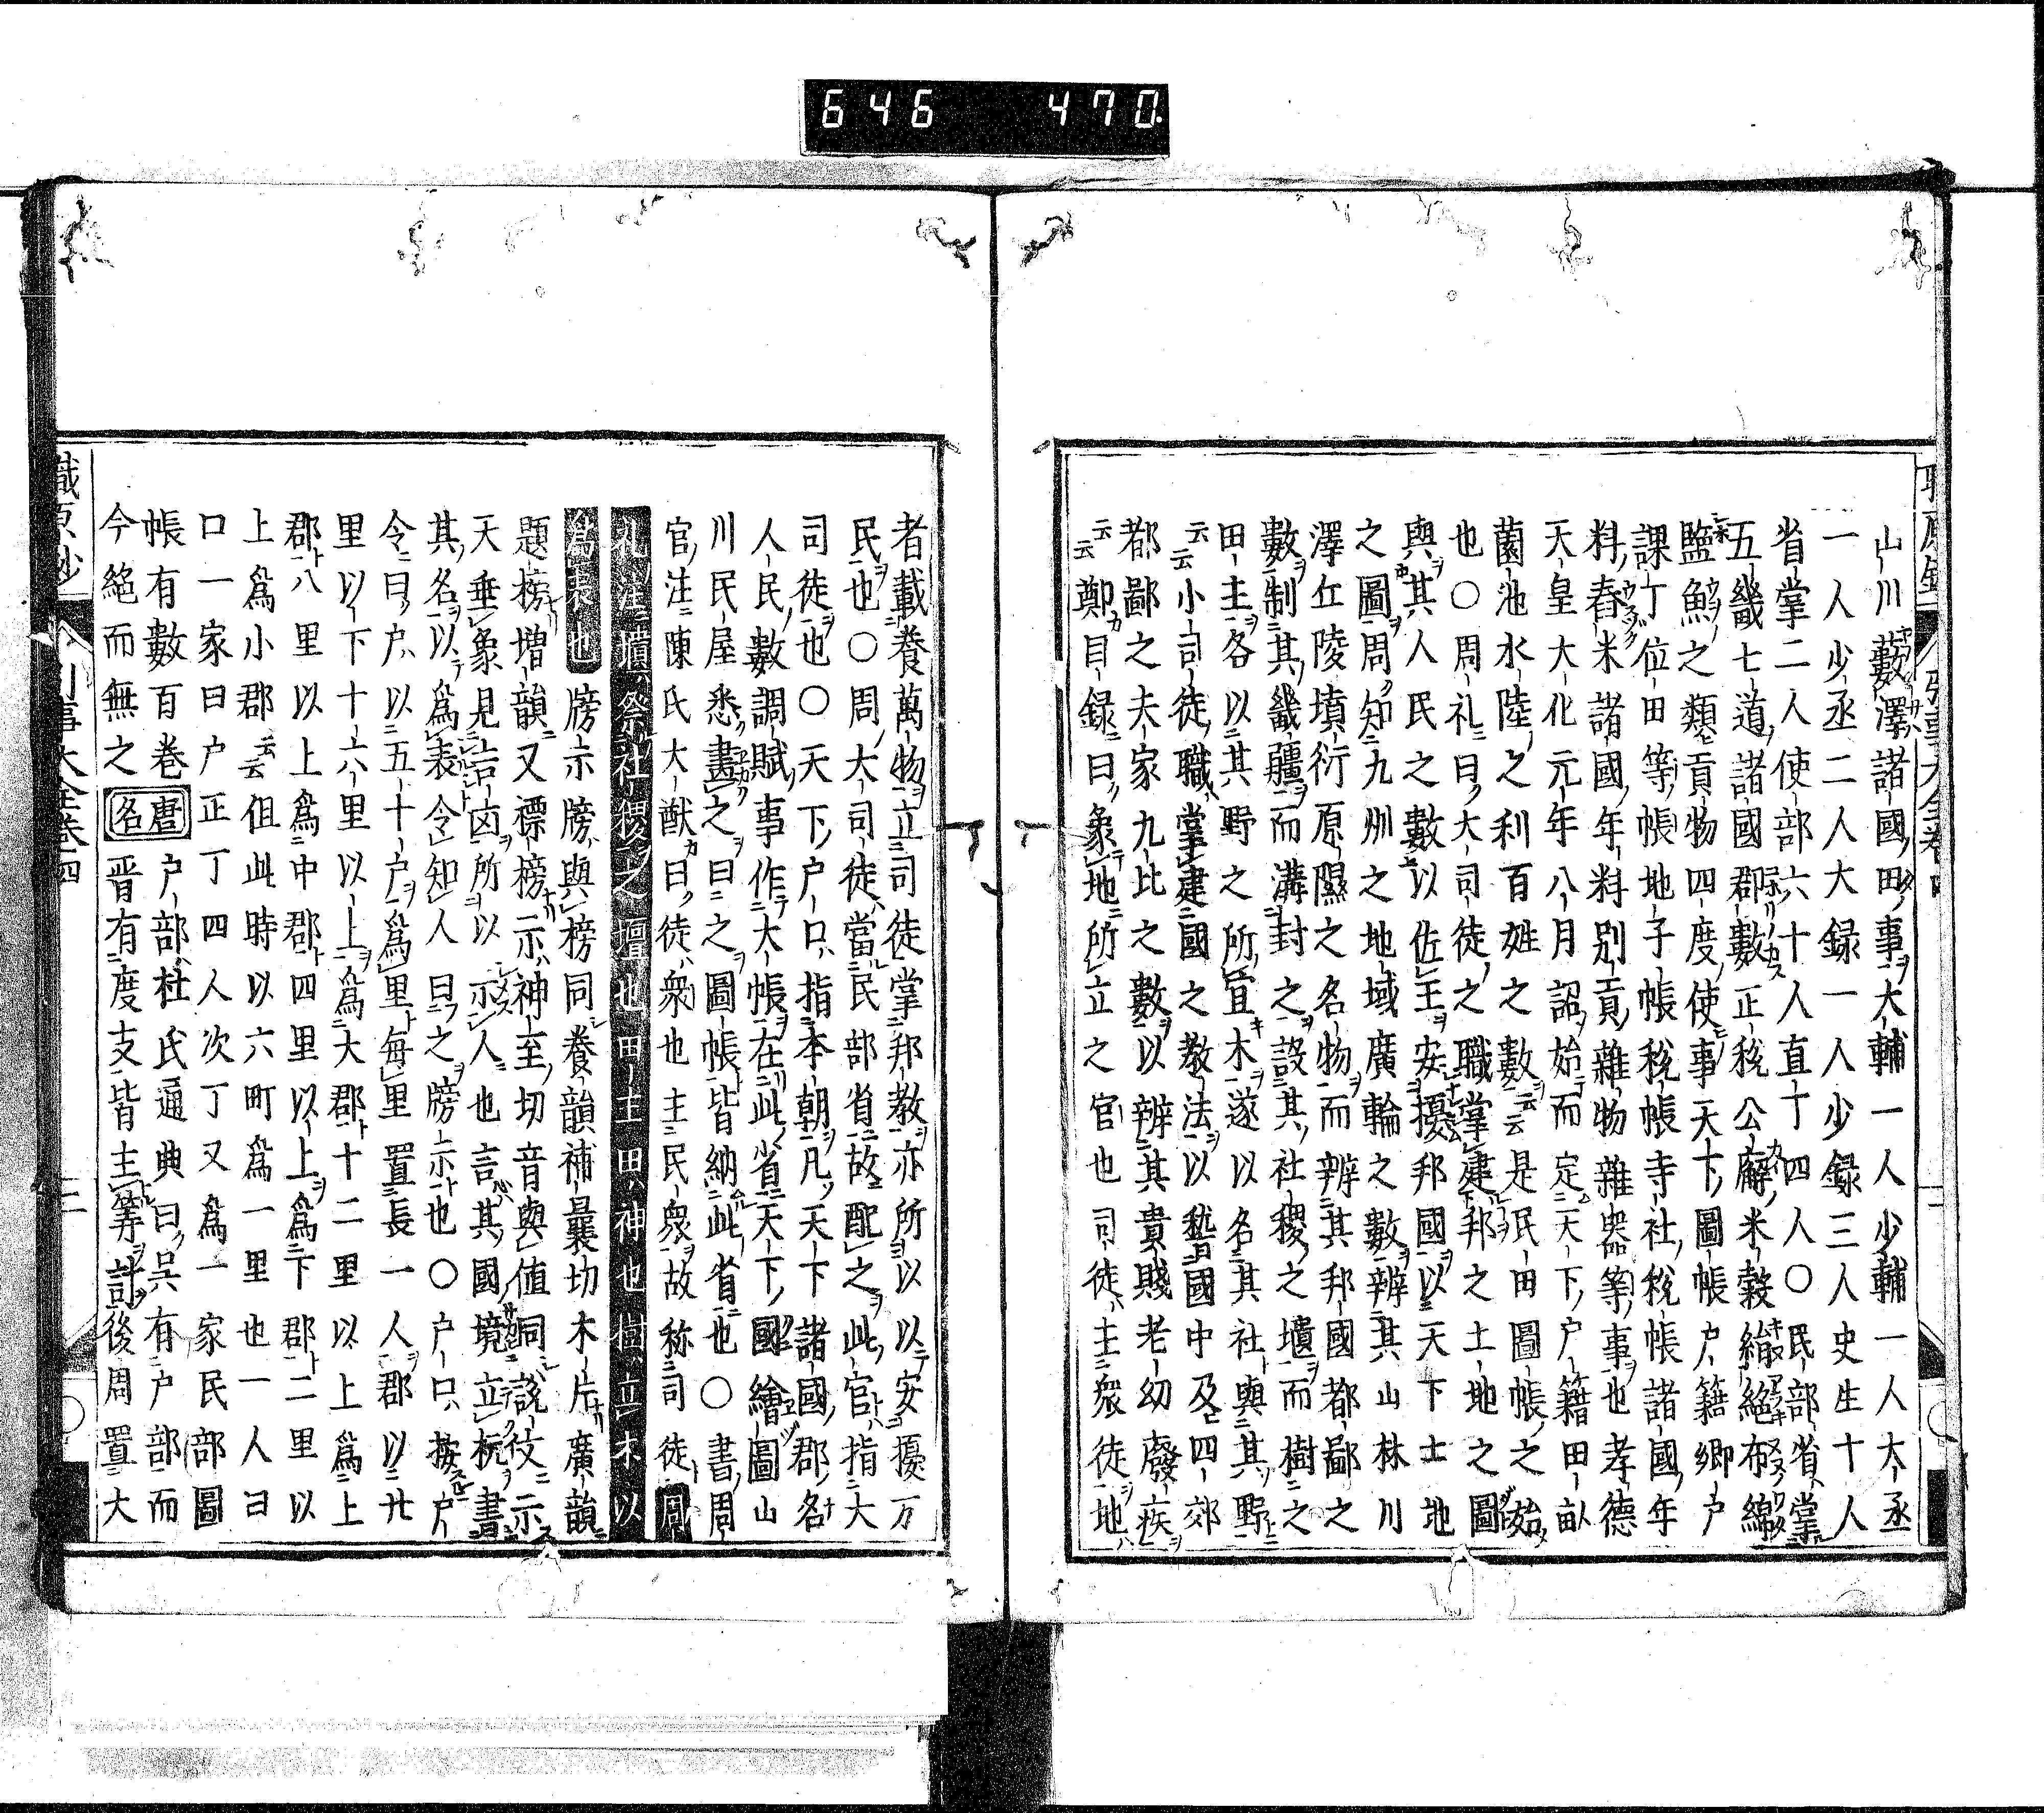 646 470
山川藪澤諸國田事大輔一人少輔一人大丞
一人少丞二人大録一人少録三人史生十人
省掌二人使部六十人直丁四人○民部省掌
五畿七道諸國郡數正税公廨米穀絹絁布綿
鹽鮑之類貢物四度使事天下圖帳戸籍郷戸
課丁位田等帳地子帳税帳寺社税帳諸國年
料舂米諸國年料別貢雜物雜器等事也孝德
天皇大化元年八月詔始而定天下戸籍田畝
薗池水陸之利百姓之數云云是民田圖帳之始
也○周礼曰大司徒之職掌建邦之土地之圖
與其人民之數以佐王安擾邦國以天下土地
之圖周知九州之地域廣輪之數辨其山林川
澤丘陵墳衍原隰之名物而辨其邦國都鄙之
數制其畿疆而溝封之設其社稷之壝而樹之
田主各以其野之所宜木遂以名其社與其野
云云小司徒職掌建國之教法以稽國中及四郊
都鄙之夫家九比之數以辨其貴賤老幼廢疾
云云鄭目録曰象地所立之官也司徒主衆徒地
者載養萬物立司徒掌邦教亦所以以安擾万
民也○周大司徒當民部省故配之此官指大
司徒也○天下戸口指本朝凡天下諸國郡各
人民數調賦事作大帳在此省天下國繪圖山
川民屋悉畫之曰之圖帳皆納此省也○書周
官注陳氏大猷曰徒衆也主民衆故称司徒周
礼注壝祭社稷之壇也田主田神也樹立木以
為表也牓示牓與榜同養韻補曩切木片廣韻
題榜増韻又標榜示神至切音與値同說文示
天垂象見吉凶所以示人也言其國境立杭書
其名以為表令知人曰之牓示也○戸口按戸
令曰戸以五十戸為里毎里置長一人郡以廿
里以下十六里以上為大郡十二里以上為上
郡八里以上為中郡四里以上為下郡二里以
上為小郡云云但此時以六町為一里也一人曰
口一家曰戸正丁四人次丁又為一家民部圖
帳有數百巻唐名戸部杜氏通典曰呉有戸部而
今絶而無之晋有度支皆主筭計後周置大